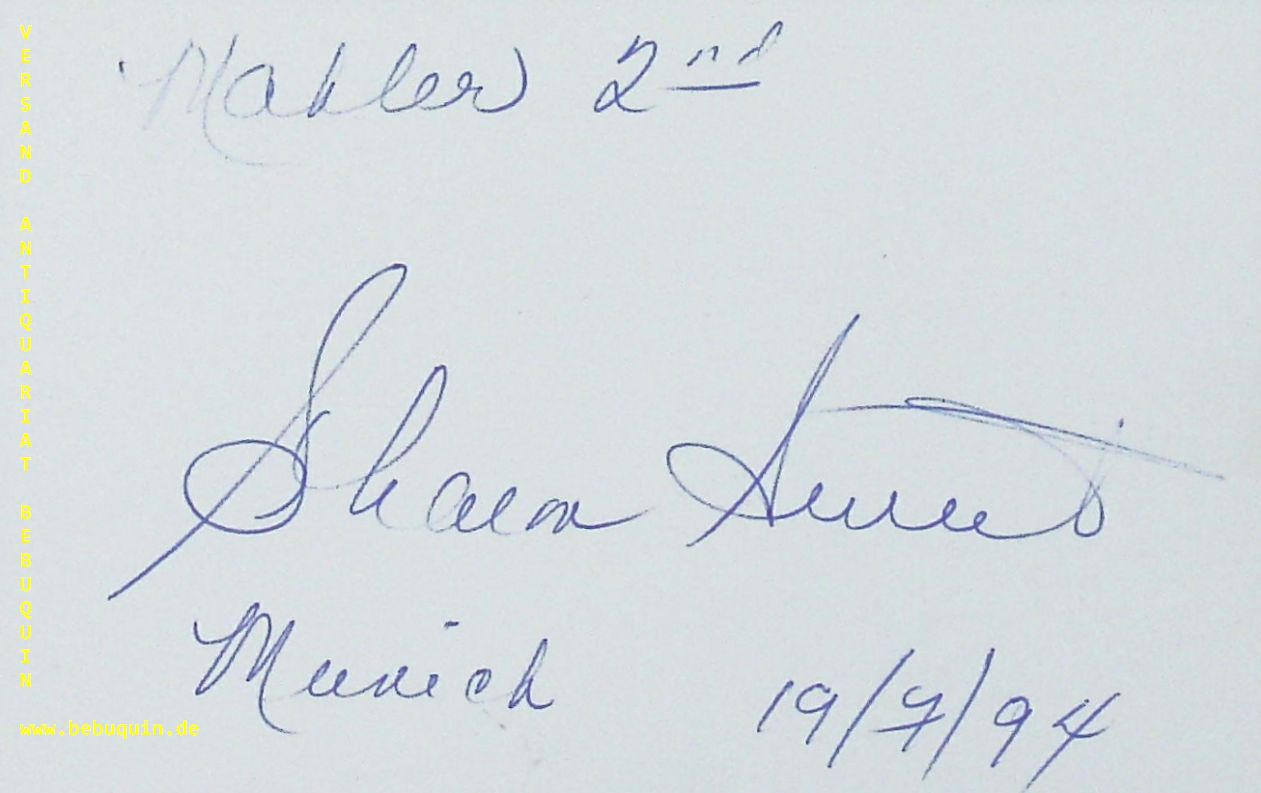 Mahler 2nd
Sharon Sweet
Munich 19/7/94
VERSAND ANTIQUARIAT BEBUQUIN
www.bebuquin.de